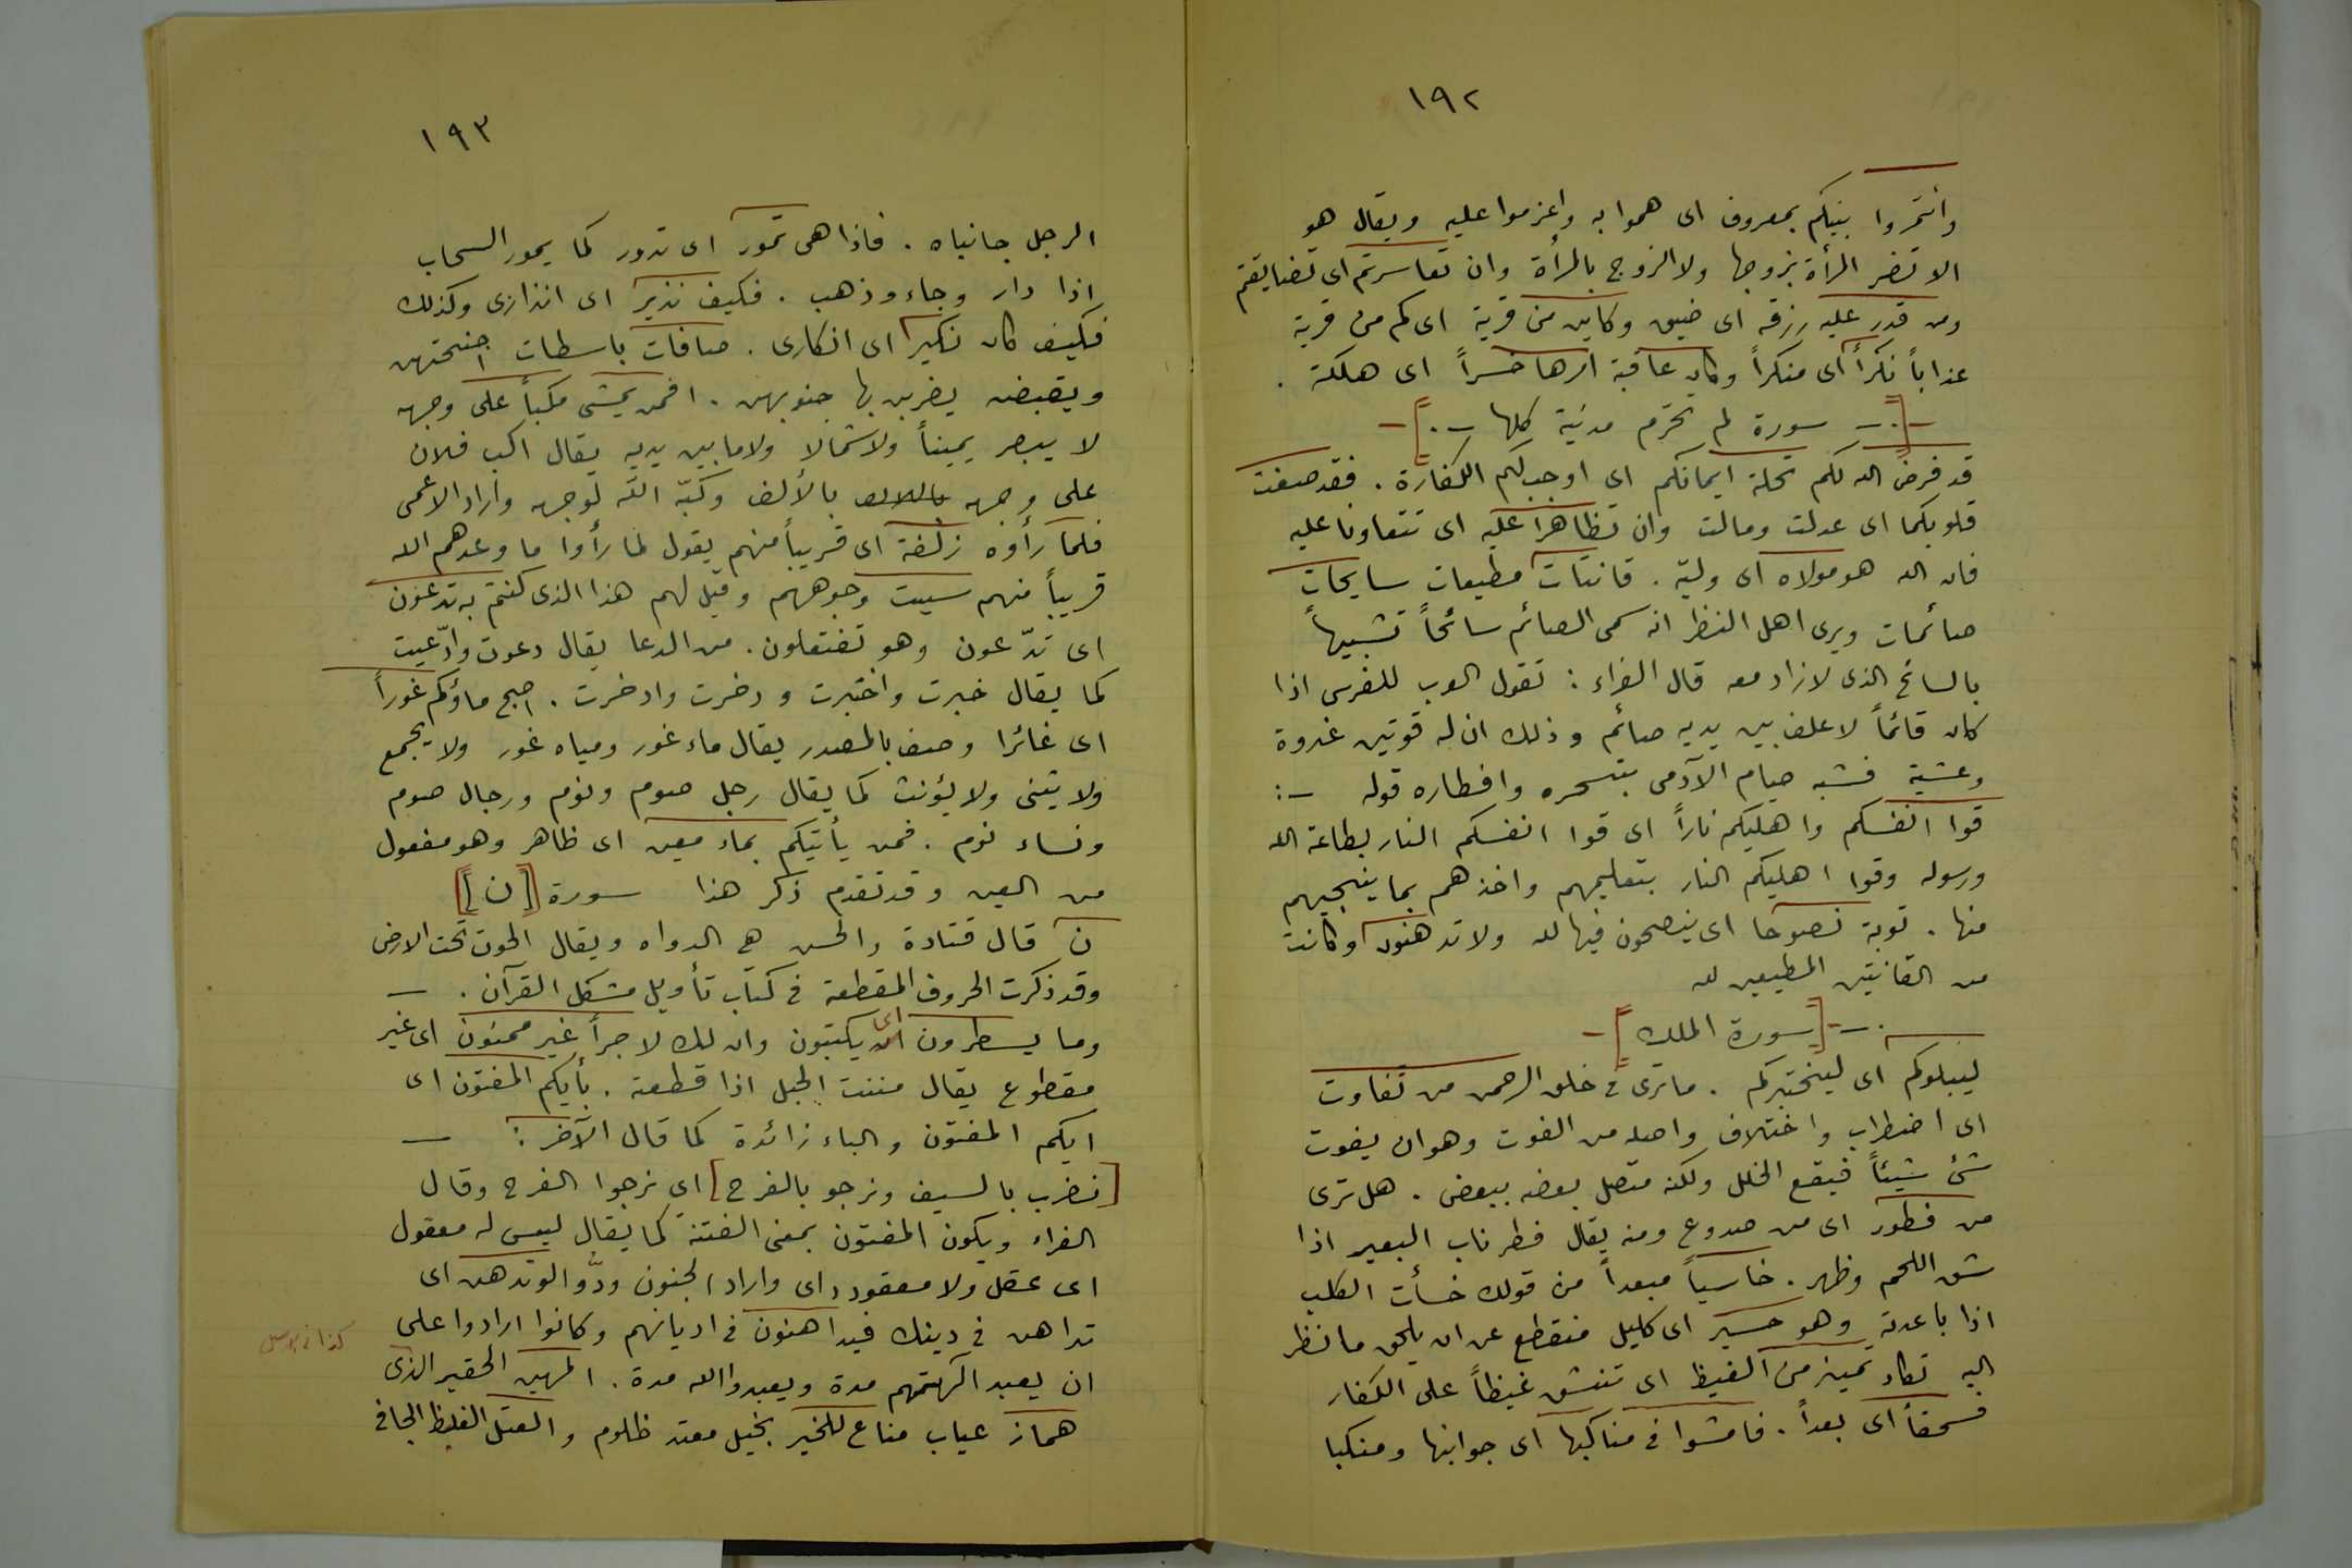 ١٩٢
وأتمروا بينكم بمعروف اى هموا به واعزموا عليه ويقال هو
الا تضر المرأة بزوجها ولا الزوج بالمرأة وان تعاسرتم اى تضايقتم
ومن قدر عليه رزقه اى ضيق وكاين من قرية اى كم من قرية
عذاباً نكراً اى منكراً وكان عاقبة امرها خسراً اى هلكة .
-[.- سورة لم تحرم مدنية كلها -.]-
قد فرض الله لكم تحلة ايمانكم اى اوجب لكم الكفارة . فقد صغت
قلوبكما اى عدلت ومالت وان تظاهرا عليه اى تتعاونا عليه
فان الله هو مولاه اى وليّه . قانتات مطيعات سايحات
صائمات ويرى اهل النظر انه سمى الصائم سائحاً تشبيهاً
بالسائح الذى لا زاد معه قال الفراء : تقول العرب للفرس اذا
كان قائماً لا علف بين يديه صائم وذلك ان له قوتين غدوة
وعشية فشبه صيام الآدمى بتسحره وافطاره قوله -:
قوا انفسكم واهليكم ناراً اى قوا انفسكم النار بطاعة الله
ورسوله وقوا اهليكم النار بتعليمهم واخذهم بما ينجيهم
منها . توبة نصوحا اى ينصحون فيها لله ولا تدهنون وكانت
من القانتين المطيعين لله
.-[سورة الملك]-
ليبلوكم اى ليختبركم . ما ترى فى خلق الرحمن من تفاوت
اى اضطراب واختلاف واصله من الفوت وهو ان يفوت
شئ شيئاً فيقع الخلل ولكنه متصل بعضه ببعض . هل ترى
من فطور اى من صدوع ومنه يقال فطر ناب البعير اذا
شق اللحم وظهر . خاسياً مبعداً من قولك خسأت الكلب
اذا باعدته وهو حسير اى كليل منقطع عن ان يلحق ما نظر
اليه تكاد تميز من الغيظ اى تنشق غيظاً على الكفار
فسحقاً اى بعداً . فامشوا فى مناكبها اى جوانبها ومنكبا
١٩٣
الرجل جانباه . فاذا هى تمور اى تدور كما يمور السحاب
اذا دار وجاء وذهب . فكيف نذير اى انذارى وكذلك
فكيف كان نكير اى انكارى . صافات باسطات اجنحتهن
ويقبضن يضربن بها جنوبهن . افمن يمشى مكباً على وجهه
لا يبصر يميناً ولا شمالا ولا ما بين يديه يقال اكب فلان
على وجهه بالألف وكبّه الله لوجهه واراد الاعمى
فلما رأوه زلفة اى قريباً منهم يقول لما رأوا ما وعدهم الله
قريباً منهم سيئت وجوههم وقيل لهم هذا الذى كنتم به تدعون
اى تدّعون وهو تفتعلون . من الدعا يقال دعوت وادّعيت
كما يقال خبرت واختبرت و دخرت وادخرت . اصبح ماؤكم غوراً
اى غائرا وصف بالمصدر يقال ماء غور ومياه غور ولا يجمع
ولا يثنى ولا يؤنث كما يقال رجل صوم ونوم ورجال صوم
ونساء نوم . فمن يأتيكم بماء معين اى ظاهر وهو مفعول
من العين وقد تقدم ذكر هذا سورة [[ن]]
ن قال قتادة والحسن هى الدواه ويقال الحوت تحت الارض
وقد ذكرت الحروف المقطعة فى كتاب تأويل مشكل القرآن . -
وما يسطرون اى يكتبون وان لك لاجراً غير ممنون اى غير
مقطوع يقال مننت الحبل اذا قطعته . بأيكم المفتون اى
ايكم المفتون والباء زائدة كما قال الآخر : -
[نضرب بالسيف ونرجو بالفرج] اى نرجوا الفرج وقال
الفراء ويكون المفتون بمعنى الفتنة كما يقال ليس له معقول
اى عقل ولا معقود راى واراد الجنون ودّوا لو تدهن اى
تداهن فى دينك فيداهنون فى اديانهم وكانوا ارادوا على
ان يعبد الهتهم مدة ويعبدوا الله مدة . المهين الحقير الذى
هماز عياب مناع للخير بخيل معتد ظلوم والعتل الغليظ الجافى